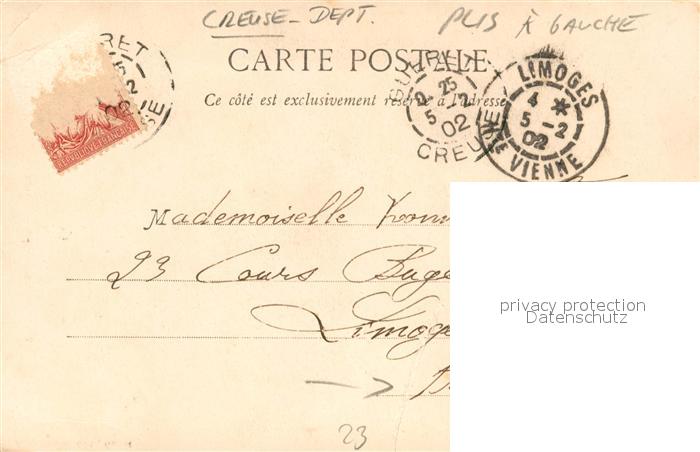 CREUSE - DEPT. PLIS À GAUCHE
CARTE POSTALE
Ce côté est exclusivement réservé à l'adresse
RET
REPUBLIQUE FRANÇAISE
GUERET
25
5 -2
02
CREUSE
LIMOGES
4 *
5 -2
02
VIENNE
Mademoiselle
23 Cours Buge
Limoge
23
privacy protection
Datenschutz